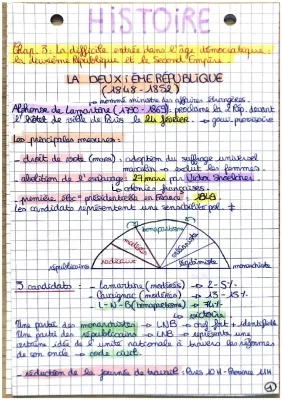 HISTOIRE
Chap. 3 : La difficile entrée dans l'âge démocratique :
la deuxième République et le Second Empire
LA DEUXIÈME RÉPUBLIQUE
(1848-1852)
→ nommé ministre des affaires étrangères.
Alphonse de Lamartine (1790-1869) : proclame la 2 Rép. devant
l'Hôtel de ville de Paris le 24 février. → gouv. provisoire
Les principales mesures :
- droit de vote (mars) : adoption du suffrage universel
masculin → exclut les femmes.
- abolition de l'esclavage : 27 mars par Victor Schoelcher
→ colonies françaises.
- première élec° présidentielle en France : 1848
Les candidats représentent une sensibilité pol. ‡
républicains
radicaux
modérés
bonapartisme
orléaniste
légitimiste
monarchistes
3 candidats :
- Lamartine (modérés) → 2-5%
- Cavaignac (modérés) → 13-15%
- L-N-B (bonapartisme) → 74%
→ victoire
Une partie des monarchistes → LNB → chef fort + identifiable
Une partie des républicains → LNB → représente une
certaine idée de l'unité nationale à travers les réformes
de son oncle → code civil.
- réduction de la journée de travail : Paris 10H - Province 11H
1